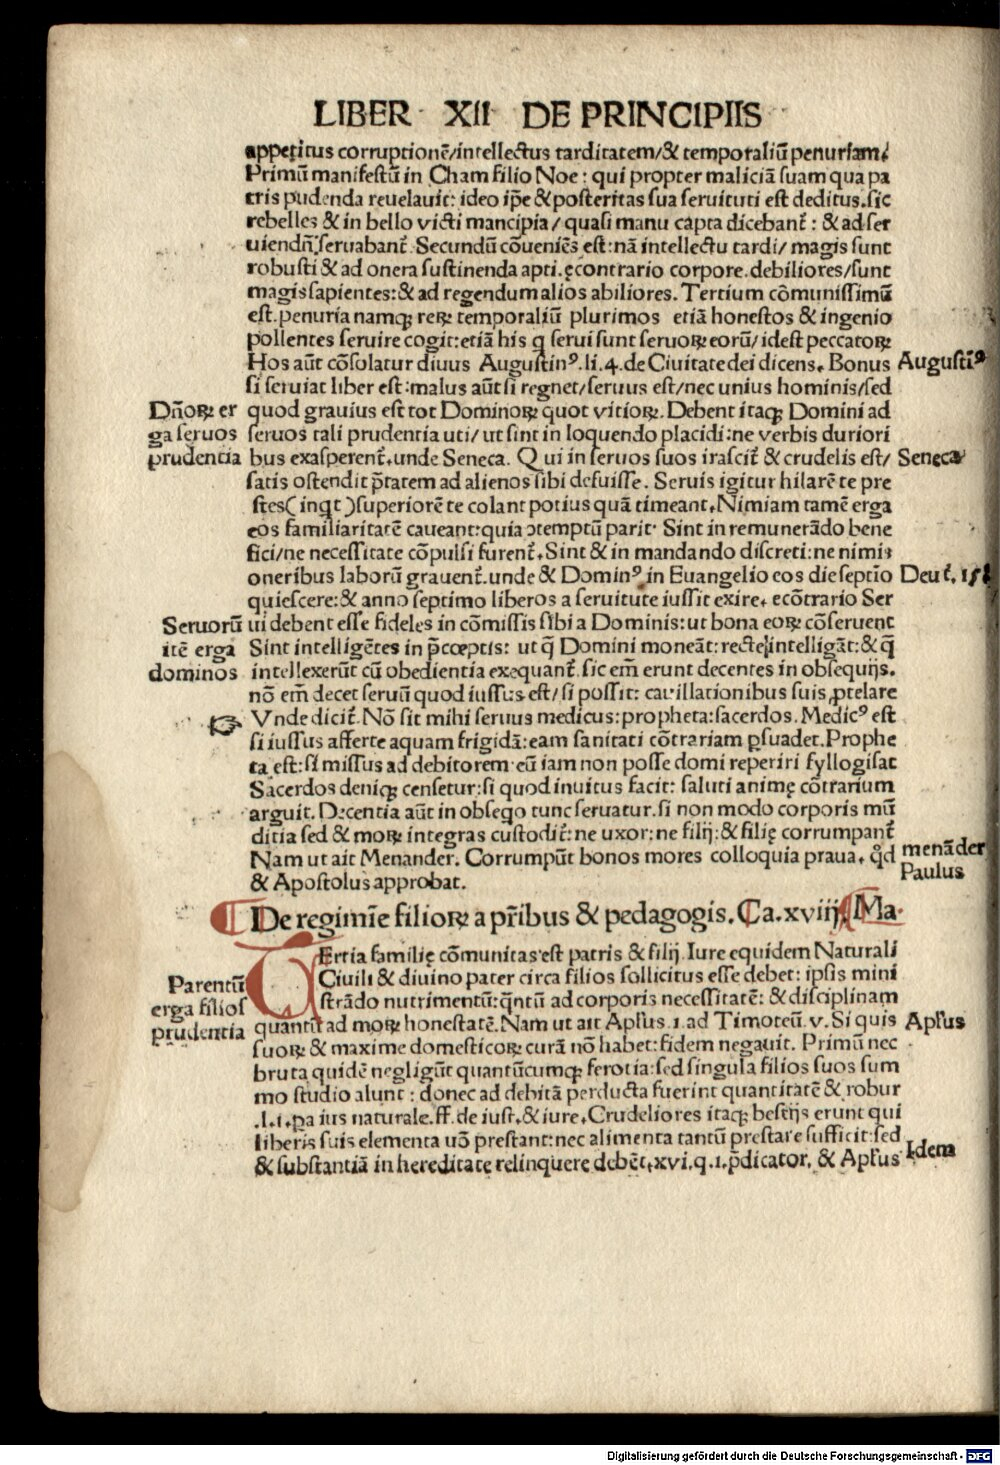 LIBER XII DE PRINCIPIIS
appetitus corruptionē/intellectus tarditatem/& temporaliū penuriam.
Primū manifestū in Cham filio Noe: qui propter maliciā suam qua pa
tris pudenda reuelauit: ideo ip̄e & posteritas sua seruituti est deditus. sic
rebelles & in bello victi mancipia/ quasi manu capta dicebant̄: & ad ser
uiendū seruabant̄. Secundū cōueniēs est: nā intellectu tardi/ magis sunt
robusti & ad onera sustinenda apti. ęcontrario corpore. debiliores/sunt
magis sapientes: & ad regendum alios abiliores. Tertium cōmunissimū
est. penuria namqꝫ reꝝ temporaliū plurimos etiā honestos & ingenio
pollentes seruire cogit: etiā his q̄ serui sunt seruoꝝ eorū/ idest peccatoꝝ
Hos aūt cōsolatur diuus Augustinꝰ. li. 4. de Ciuitate dei dicens. Bonus
Augustīꝰ
si seruiat liber est: malus aūt si regnet/seruus est/nec unius hominis/sed
Dn̄oꝝ er
ga seruos
prudentia
quod grauius est tot Dominoꝝ quot vitioꝝ. Debent itaqꝫ Domini ad
seruos tali prudentia uti/ ut sint in loquendo placidi: ne verbis duriori
bus exasperent̄. unde Seneca. Qui in seruos suos irascit̄ & crudelis est/
Seneca
satis ostendit p̄tatem ad alienos sibi defuisse. Seruis igitur hilarē te pre
stes( inqt )superiorē te colant potius quā timeant. Nimiam tamē erga
eos familiaritatē caueant: quia ↄtemptū parit. Sint in remunerādo bene
fici/ne necessitate cōpulsi furent̄. Sint & in mandando discreti: ne nimis
oneribus laborū grauent̄. unde & Dominꝰ in Euangelio eos die septīo
Deut̄. 15
quiescere: & anno septimo liberos a seruitute iussit exire. ecōtrario Ser
Seruorū
itē erga
dominos
ui debent esse fideles in cōmissis sibi a Dominis: ut bona eoꝝ cōseruent
Sint intelligētes in p̄cœptis: ut q̄ Domini moneāt: recte intelligāt: & q̄
intellexerūt cū obedientia exequant̄. sic em̄ erunt decentes in obsequijs.
nō em̄ decet seruū quod iussus est/ si possit: cauillationibus suis ꝓtelare
Vnde dicit̄. Nō sit mihi seruus medicus: propheta: sacerdos. Medicꝰ est
si iussus afferte aquam frigidā: eam sanitati cōtrariam ꝑsuadet. Prophe
ta est: si missus ad debitorem eū iam non posse domi reperiri syllogisat
Sacerdos deniqꝫ censetur: si quod inuitus facit: saluti animę cōtrarium
arguit. Decentia aūt in obseqo tunc seruatur. si non modo corporis mū
ditia sed & moꝝ integras custodit̄: ne uxor: ne filij: & filię corrumpant̄
Nam ut ait Menander. Corrumpūt bonos mores colloquia praua. qd̄
menāder
Paulus
& Apostolus approbat.
De regimīe filioꝝ a pr̄ibus & pedagogis. Ca. xviij. Ma.
TErtia familię cōmunitas est patris & filij. Iure equidem Naturali
Parentū
erga filios
prudentia
Ciuili & diuino pater circa filios sollicitus esse debet: ipsis mini
strādo nutrimentū: q̄ntū ad corporis necessitatē: & disciplinam
quantū ad moꝝ honestatē. Nam ut ait Apl̄us. 1. ad Timoteū. v. Si quis
Apl̄us
suoꝝ & maxime domesticoꝝ curā nō habet: fidem negauit. Primū nec
bruta quidē negligūt quantūcumqꝫ ferotia: sed singula filios suos sum
mo studio alunt: donec ad debitā perducta fuerint quantitatē & robur
.l.1. ꝑa ius naturale. ff. de iust. & iure. Crudeliores itaqꝫ bestijs erunt qui
liberis suis elementa uō prestant: nec alimenta tantū prestare sufficit: sed
& substantiā in hereditate relinquere debēt. xvi. q. 1. p̄dicator. & Apl̄us
Idem
Digitalisierung gefördert durch die Deutsche Forschungsgemeinschaft - DFG